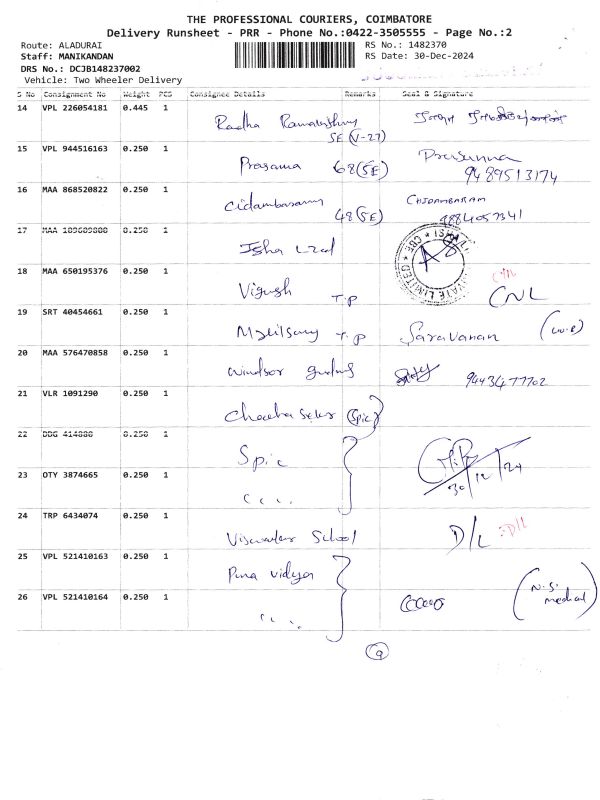 THE PROFESSIONAL COURIERS, COIMBATORE
Delivery Runsheet - PRR - Phone No.:0422-3505555 - Page No.:2
Route: ALADURAI
Staff: MANIKANDAN
DRS No.: DCJB148237002
Vehicle: Two Wheeler Delivery
RS No.: 1482370
RS Date: 30-Dec-2024
S No Consignment No Weight PCS Consignee Details Remarks Seal & Signature
14 VPL 226054181 0.445 1 Radha
15 VPL 944516163 0.250 1 Prasanna 68(SE) Prasanna
9489513174
16 MAA 868520822 0.250 1 Cidambaram 48(SE) CHIDAMBARAM
9884057341
17 MAA 0.250 1 Isha
18 MAA 650195376 0.250 1 Vignesh T.P CNL
19 SRT 40454661 0.250 1 T.P Saravanan
20 MAA 576470858 0.250 1 Windsor 9443477702
21 VLR 1091290 0.250 1 Sales (Spic)
22 DDG 0.250 1 Spic
30/12/24
23 OTY 3874665 0.250 1 " "
24 TRP 6434074 0.250 1 School D/L D/L
25 VPL 521410163 0.250 1 vidya
26 VPL 521410164 0.250 1 " " (N.S. medical)
9